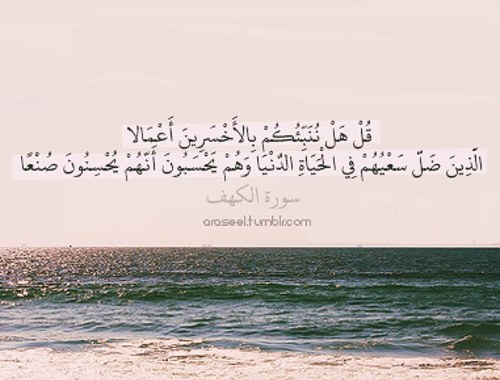 قُلْ هَلْ نُنَبِّئُكُمْ بِالأَخْسَرِينَ أَعْمَالا
الَّذِينَ ضَلَّ سَعْيُهُمْ فِي الْحَيَاةِ الدُّنْيَا وَهُمْ يَحْسَبُونَ أَنَّهُمْ يُحْسِنُونَ صُنْعًا
سورة الكهف
araseel.tumblr.com